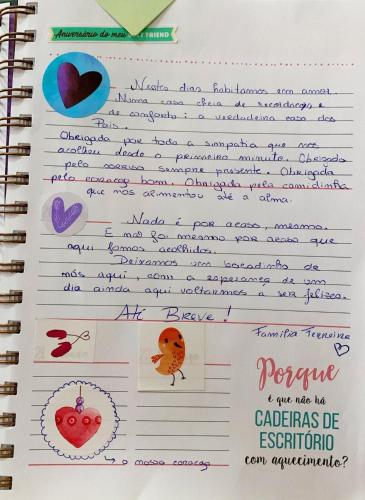 Aniversário do meu BEST FRIEND
Nestes dias habitamos em amor.
Numa casa cheia de recordações e
de conforto: a verdadeira casa dos
Pais.
Obrigada por toda a simpatia que nos
acolheu desde o primeiro minuto. Obrigada
pelo sorriso sempre presente. Obrigada
pelo coração bom. Obrigada pela comidinha
que nos alimentou até a alma.
Nada é por acaso, mesmo.
E não foi mesmo por acaso que
aqui fomos acolhidos.
Deixamos um bocadinho de
nós aqui, com a esperança de um
dia ainda aqui voltarmos a ser felizes.
Até Breve!
Família Ferreira
Porque
é que não há
CADEIRAS DE
ESCRITÓRIO
com aquecimento?
o nosso coração